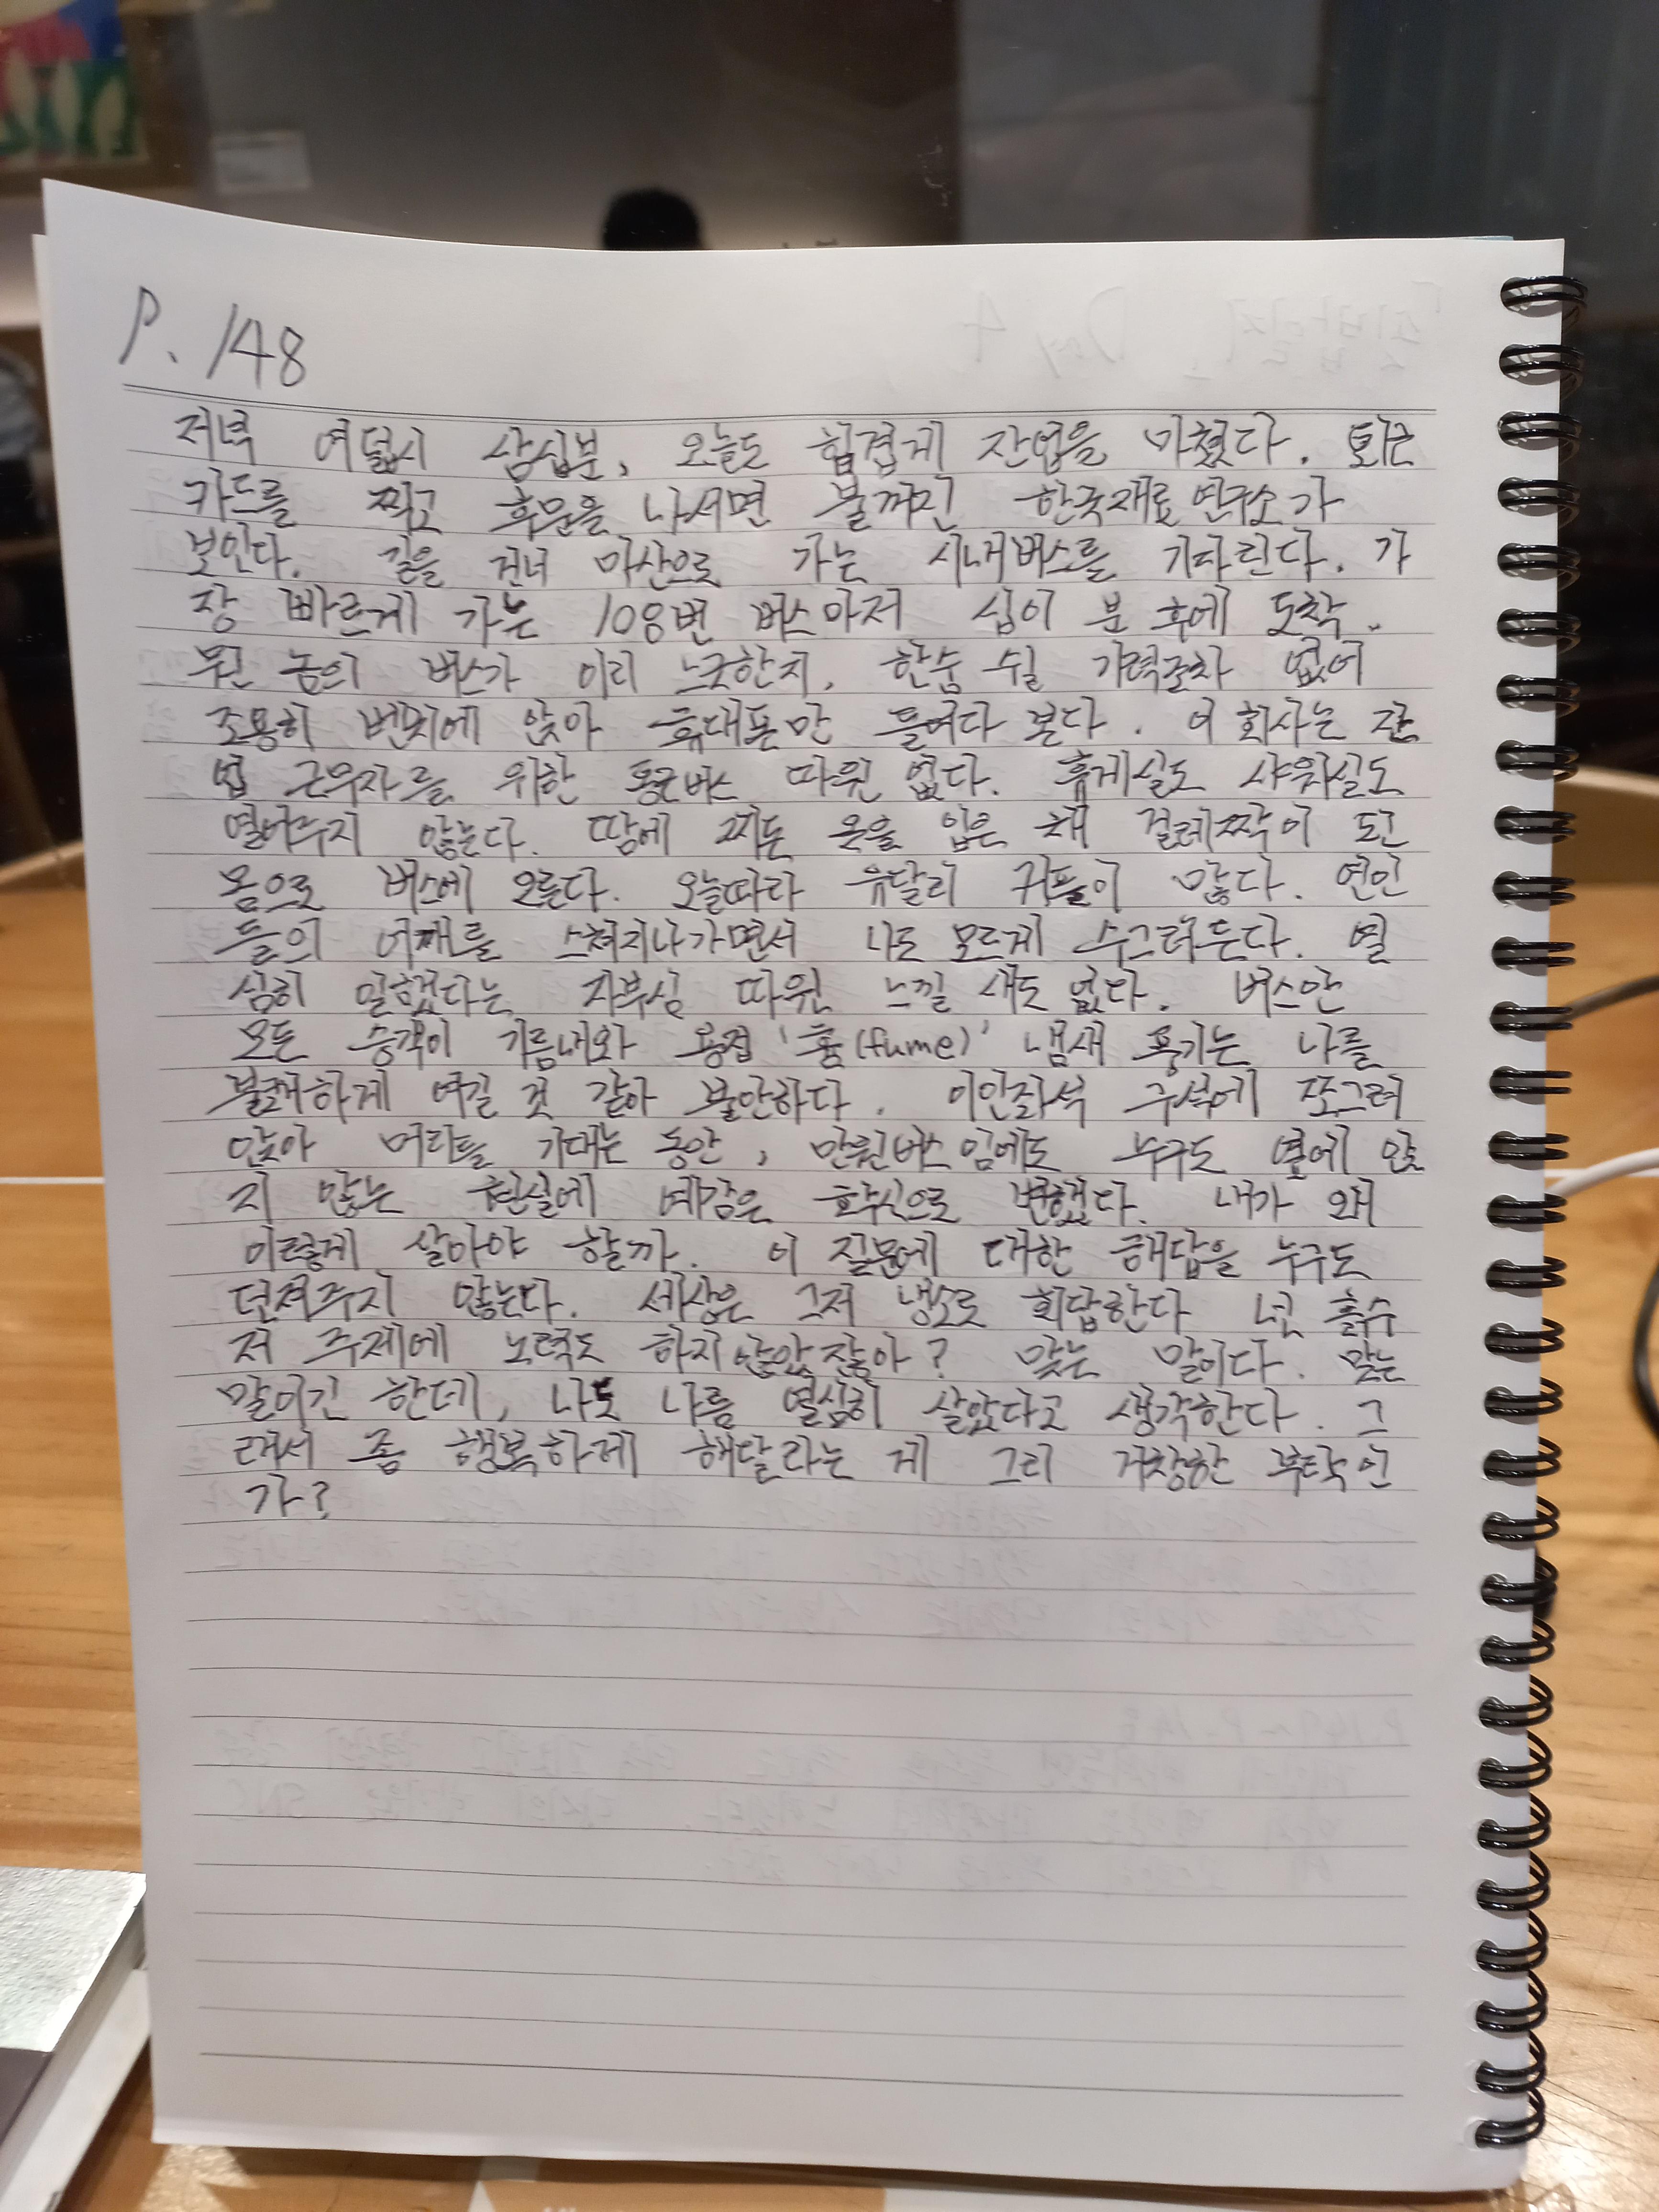 P. 148
저녁 여덟시 삼십분, 오늘도 힘겹게 잔업을 마쳤다. 퇴근
카드를 찍고 후문을 나서면 불꺼진 한국재료연구소가
보인다. 길을 건너 마산으로 가는 시내버스를 기다린다. 가
장 빠르게 가는 108번 버스마저 십이 분 후에 도착.
뭔 놈의 버스가 이리 느긋한지. 한숨 쉴 기력조차 없어
조용히 벤치에 앉아 휴대폰만 들여다 본다. 이 회사는 잔
업 근무자를 위한 통근버스 따윈 없다. 휴게실도 샤워실도
열어주지 않는다. 땀에 쩌든 옷을 입은 채 걸레짝이 되
몸으로 버스에 오른다. 오늘따라 유달리 커플이 많다. 연인
들의 어깨를 스쳐지나가면서 나도 모르게 수그러든다. 열
심히 일했다는 자부심 따윈 느낄 새도 없다. 버스안
모든 승객이 기름내와 용접 '흄(fume)' 냄새 풍기는 나를
불쾌하게 여길 것 같아 불안하다. 이인좌석 구석에 쪼그려
앉아 머리를 기대는 동안, 만원버스임에도 누구도 옆에 앉
지 않는 현실에 예감은 확신으로 변했다. 내가 왜
이렇게 살아야 할까. 이 질문에 대한 해답을 누구도
던져주지 않는다. 세상은 그저 냉소로 회답한다 넌 흙수
저 주제에 노력도 하지 않았잖아? 맞는 말이다. 맞는
말이긴 한데, 나도 나름 열심히 살았다고 생각한다. 그
래서 좀 행복하게 해달라는 게 그리 거창한 부탁인
가?